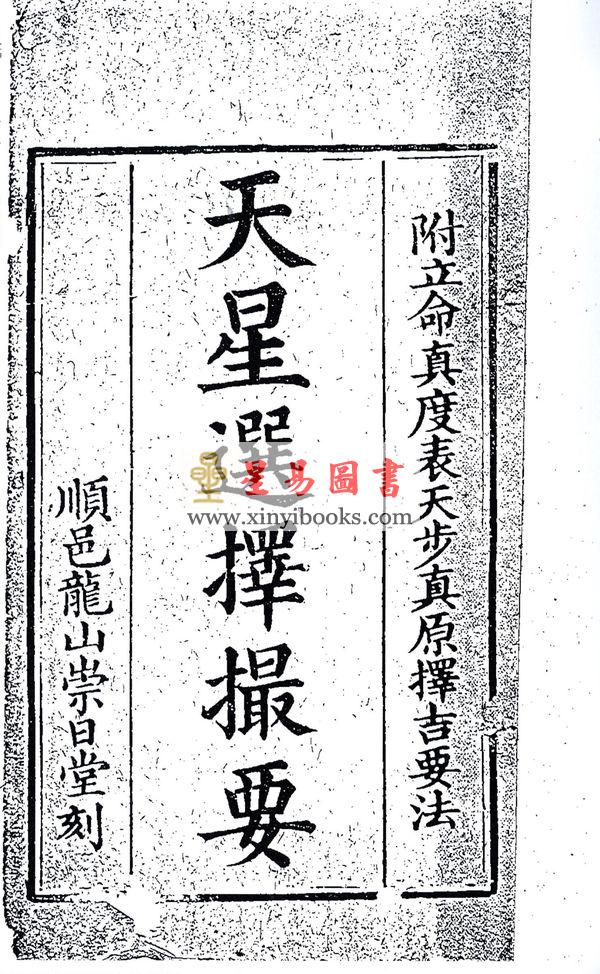 附立命真度表天步真原擇吉要法
天星選擇撮要
順邑龍山崇日堂刻
星易圖書
www.xinyibooks.com